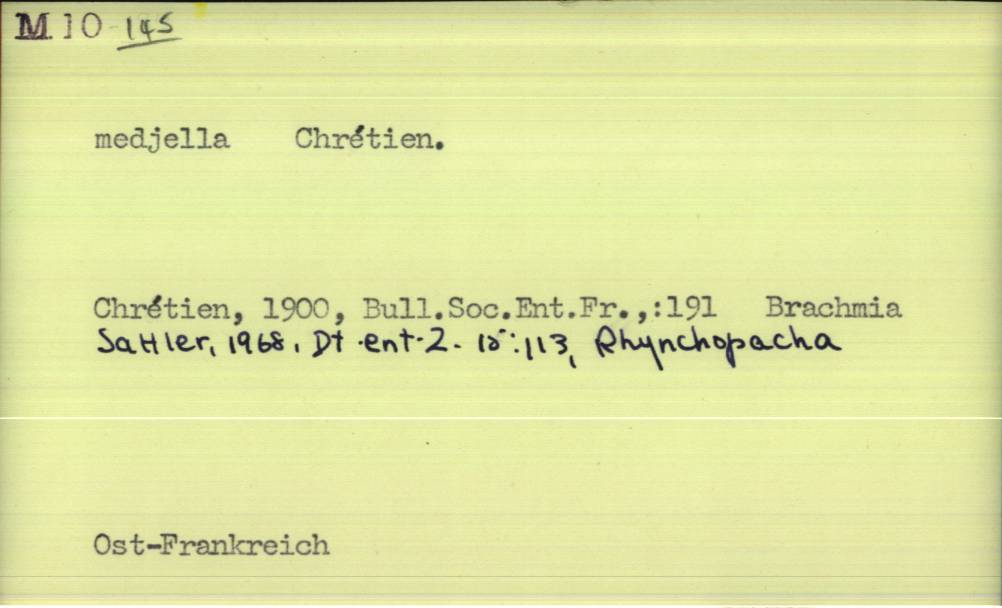 M 10 145
medjella Chrétien.
Chrétien, 1900, Bull.Soc.Ent.Fr.,:191 Brachmia
Sattler, 1968. Dt. ent. Z. 15:113, Rhynchopacha
Ost-Frankreich